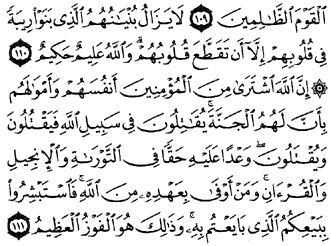 ٱلْقَوْمَ ٱلظَّٰلِمِينَ ١٠٩ لَا يَزَالُ بُنْيَٰنُهُمُ ٱلَّذِى بَنَوْا۟ رِيبَةً
فِى قُلُوبِهِمْ إِلَّآ أَن تَقَطَّعَ قُلُوبُهُمْ ۗ وَٱللَّهُ عَلِيمٌ حَكِيمٌ ١١٠
۞ إِنَّ ٱللَّهَ ٱشْتَرَىٰ مِنَ ٱلْمُؤْمِنِينَ أَنفُسَهُمْ وَأَمْوَٰلَهُم
بِأَنَّ لَهُمُ ٱلْجَنَّةَ ۚ يُقَٰتِلُونَ فِى سَبِيلِ ٱللَّهِ فَيَقْتُلُونَ
وَيُقْتَلُونَ ۖ وَعْدًا عَلَيْهِ حَقًّا فِى ٱلتَّوْرَىٰةِ وَٱلْإِنجِيلِ
وَٱلْقُرْءَانِ ۚ وَمَنْ أَوْفَىٰ بِعَهْدِهِۦ مِنَ ٱللَّهِ ۚ فَٱسْتَبْشِرُوا۟
بِبَيْعِكُمُ ٱلَّذِى بَايَعْتُم بِهِۦ ۚ وَذَٰلِكَ هُوَ ٱلْفَوْزُ ٱلْعَظِيمُ ١١١